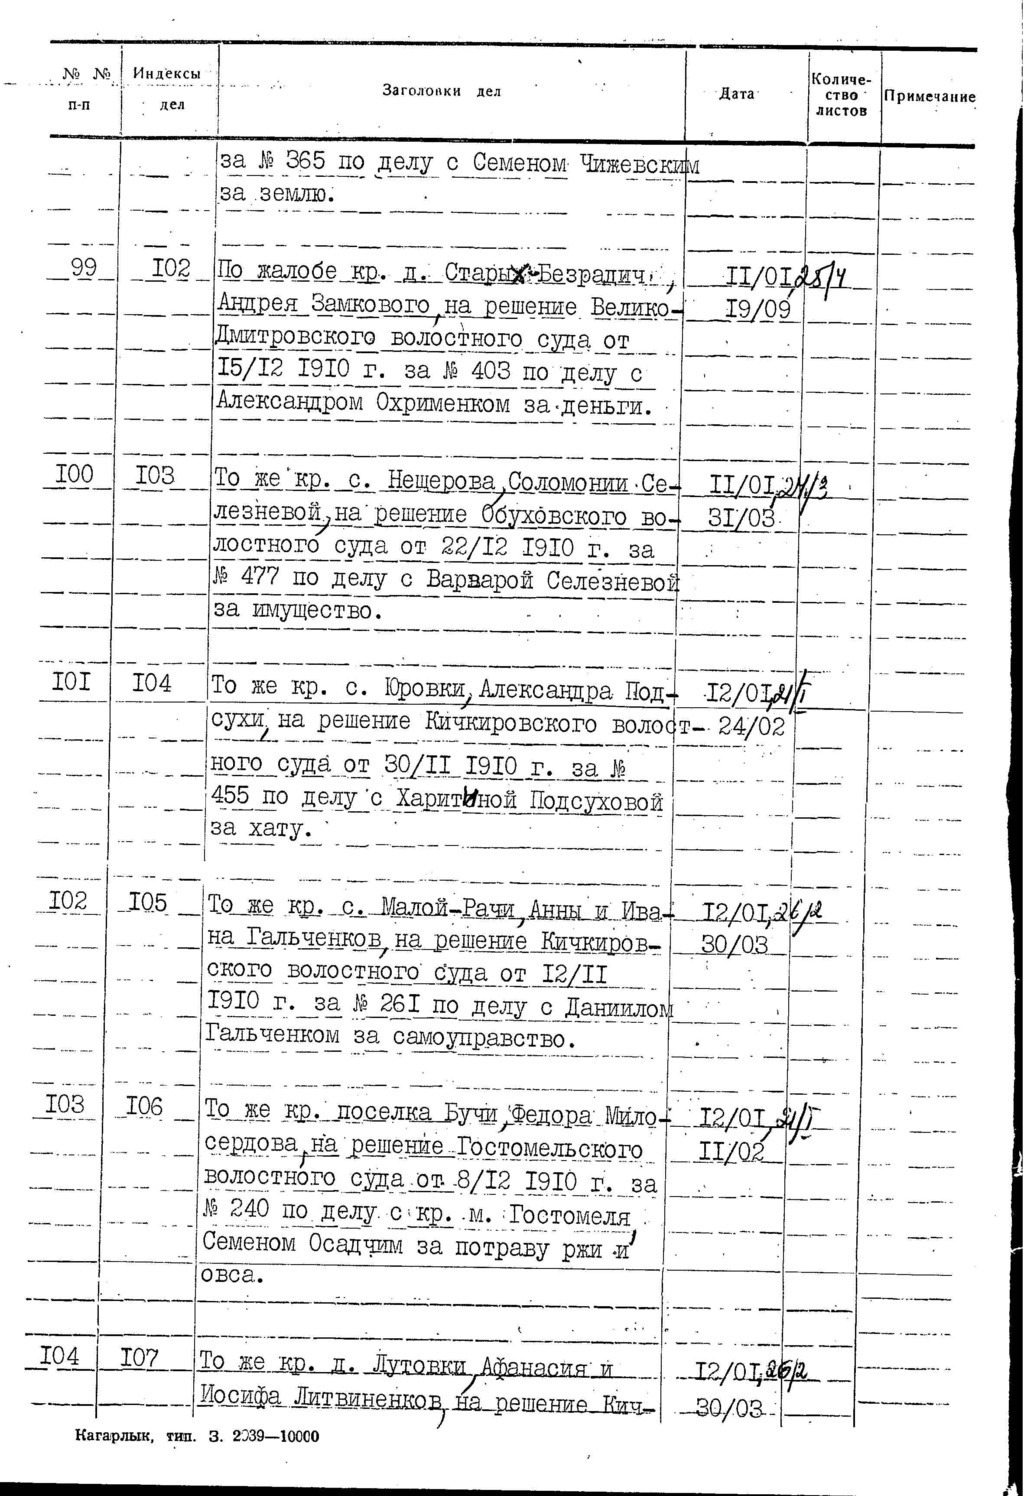 № № п-п | Индексы дел | Заголовки дел | Дата | Количе-ство листов | Примечание
за № 365 по делу с Семеном Чижевским
за землю.
99 | I02 | По жалобе кр. д. Стары Безрадич, | II/OI,
Андрея Замкового, на решение Велико- | I9/09
Дмитровского волостного суда от
I5/I2 I9I0 г. за № 403 по делу с
Александром Охрименком за деньги.
I00 | I03 | То же кр. с. Нещерова, Соломонии Се- | II/OI,
лезневой, на решение Обуховского во- | 3I/03
лостного суда от 22/I2 I9I0 г. за
№ 477 по делу с Варварой Селезневой
за имущество.
I0I | I04 | То же кр. с. Юровки, Александра Под- | I2/OI,
сухи, на решение Кичкировского волост- | 24/02
ного суда от 30/II I9I0 г. за №
455 по делу с Харитиной Подсуховой
за хату.
I02 | I05 | То же кр. с. Малой-Рачи, Анны и Ива- | I2/OI, 26/2
на Гальченков, на решение Кичкиров- | 30/03
ского волостного суда от I2/II
I9I0 г. за № 26I по делу с Даниилом
Гальченком за самоуправство.
I03 | I06 | То же кр. поселка Бучи, Федора Мило- | I2/OI,
сердова, на решение Гостомельского | II/02
волостного суда от 8/I2 I9I0 г. за
№ 240 по делу с кр. м. Гостомеля
Семеном Осадчим за потраву ржи и
овса.
I04 | I07 | То же кр. д. Лутовки, Афанасия и | I2/OI, 26/2
Иосифа Литвиненков, на решение Кич- | 30/03
Кагарлык, тип. З. 2039—10000